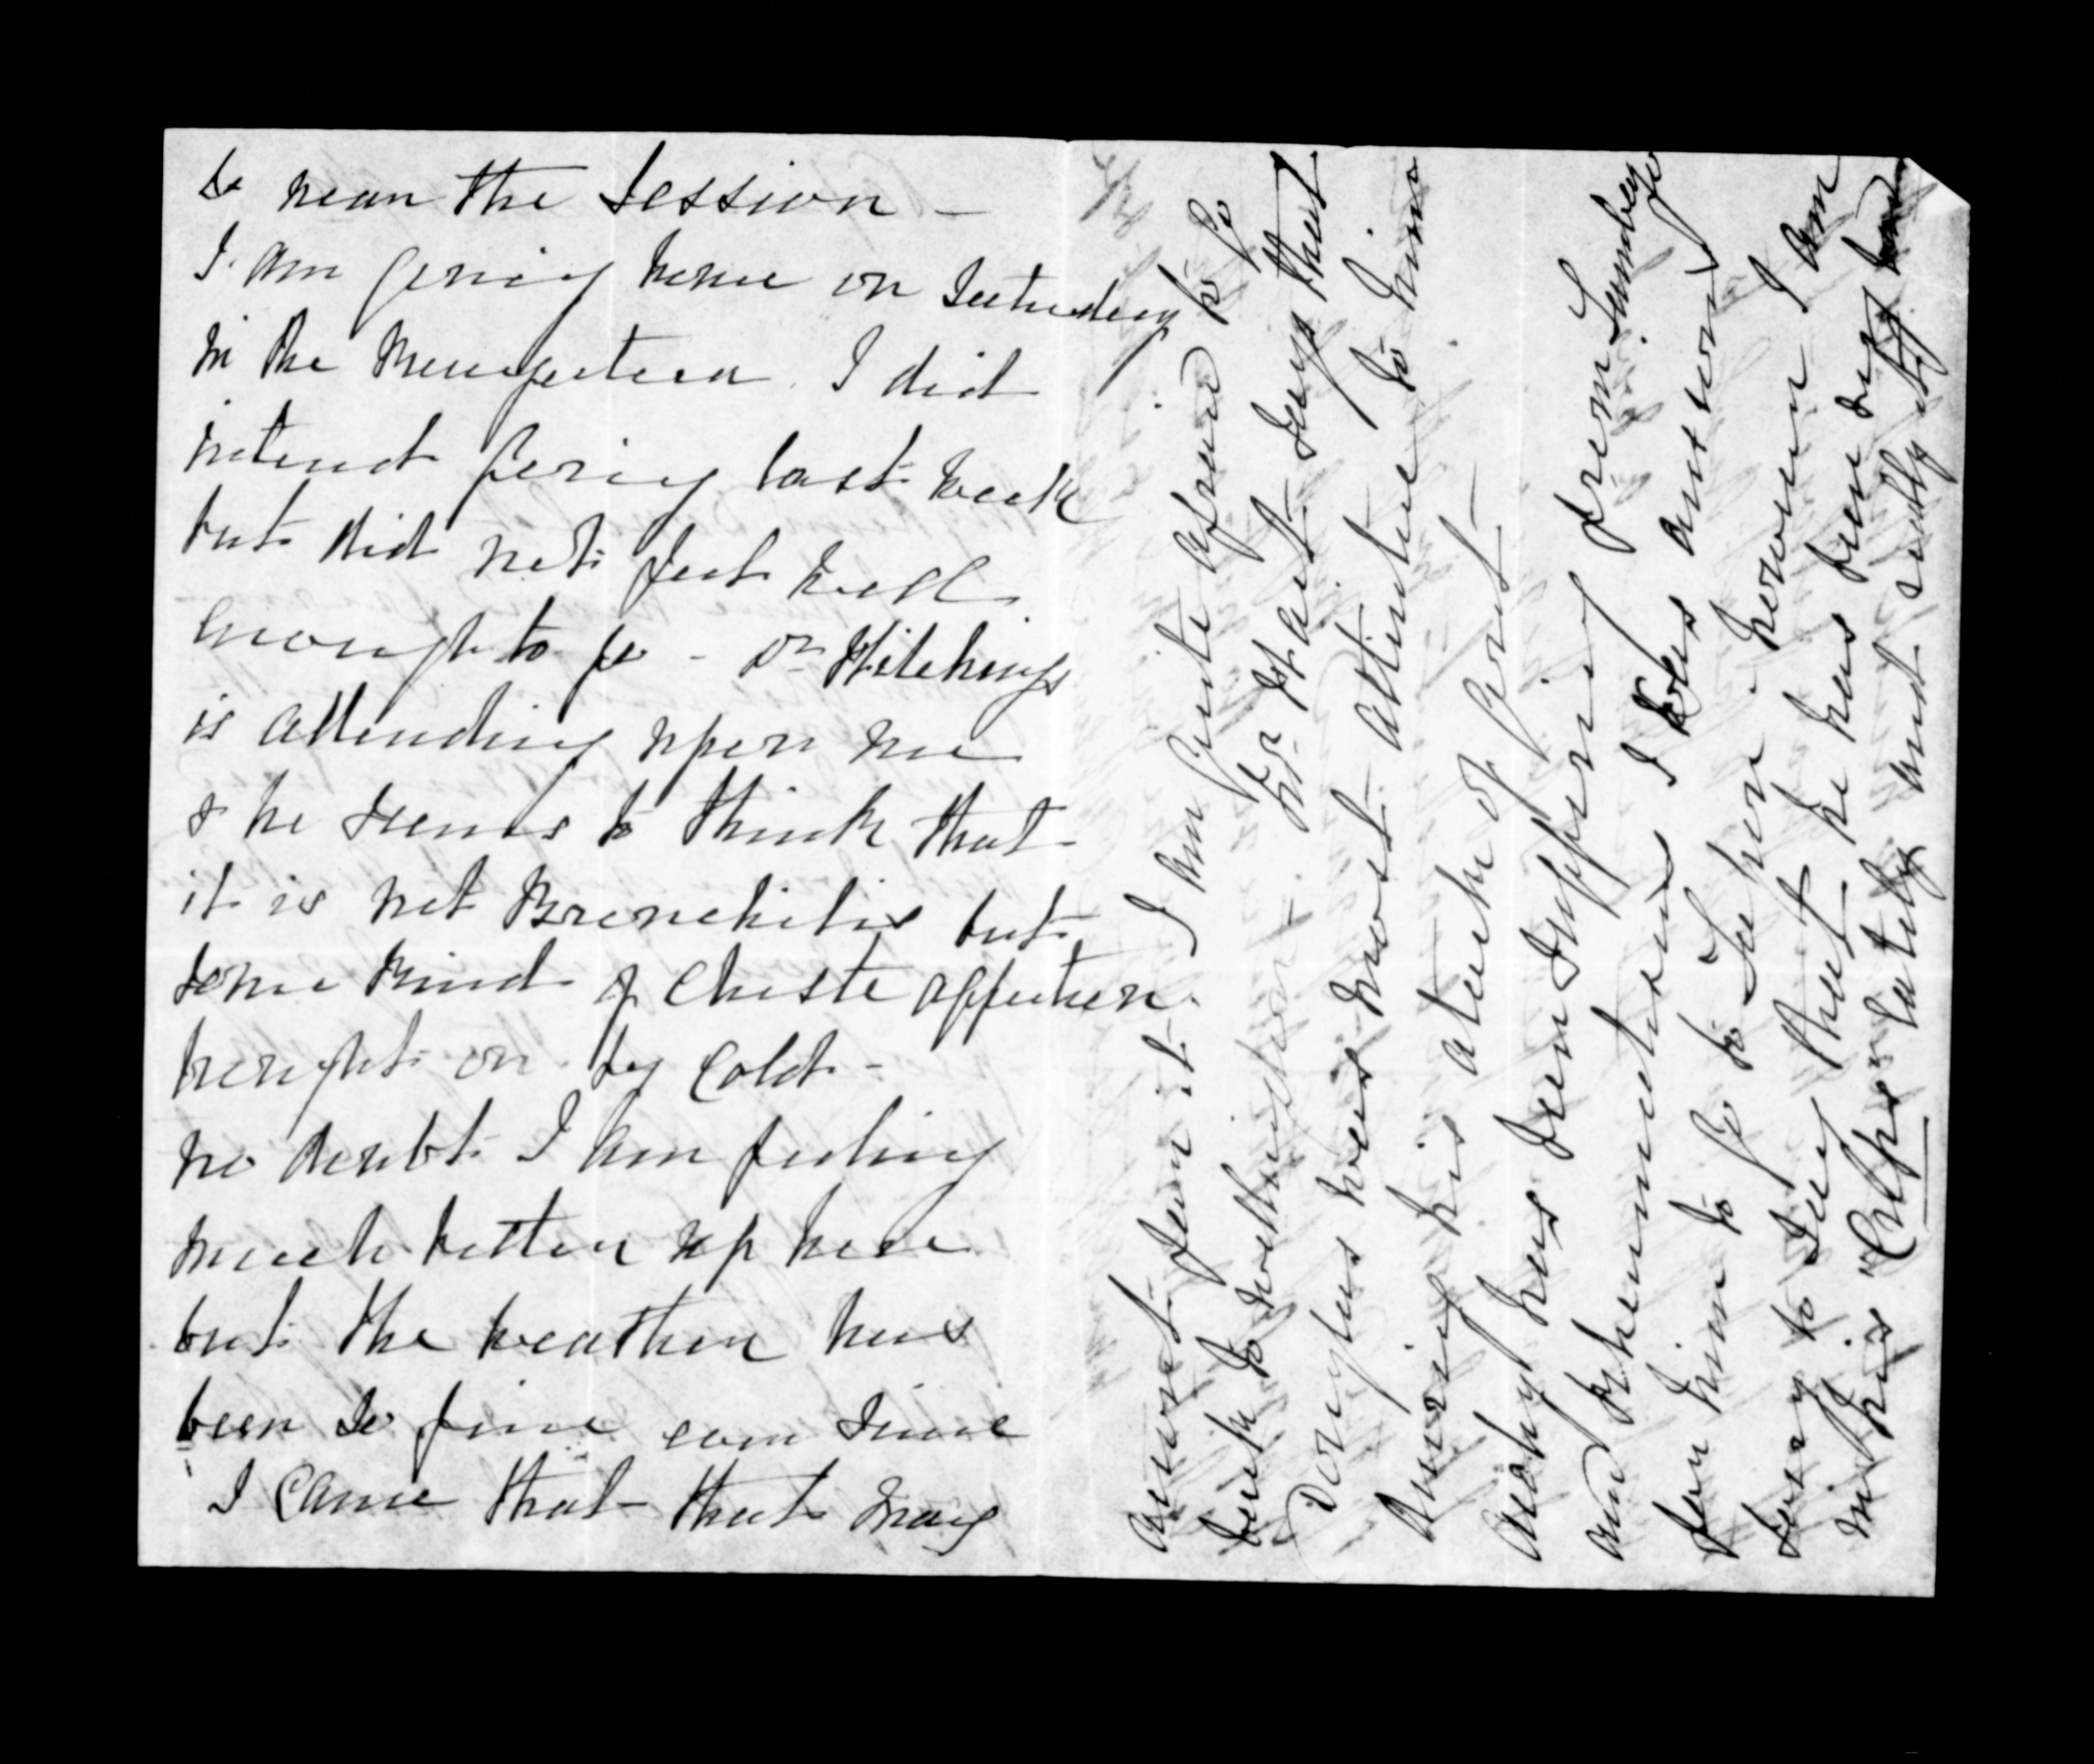 so near the Session -
I am going home on Saturday
in the Rangatira. I did
intend going last week
but did not feel well
enough to go - Dr Hitchings
is attending upon me
& he seems to think that
it is not Bronchitis but
some kind of Cheste affection
brought on by Cold -
no doubt I am feeling
much better up here
but the weather has
been so fine ever since
I came that that may
account for it I am quite afraid to go
back to Wellington. Mr Hart says that
Douglas was most attentive to him
during his attack of Gout -
Archy has been suffering from Lumbago
and rheumatism I was anxious
for him to go to Taupo. however I am
sorry to say that he has been
in his "Cups" lately and sadly